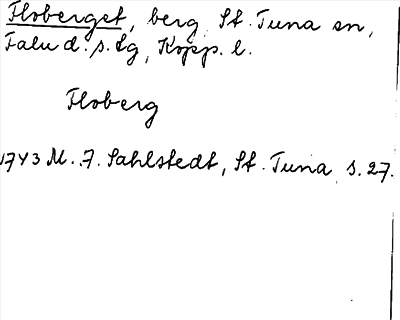 Floberget, berg, St. Tuna sn,
Falu d. s. lg, Kopp. l.
Floberg
1743 M. F. Sahlstedt, St. Tuna s. 27.